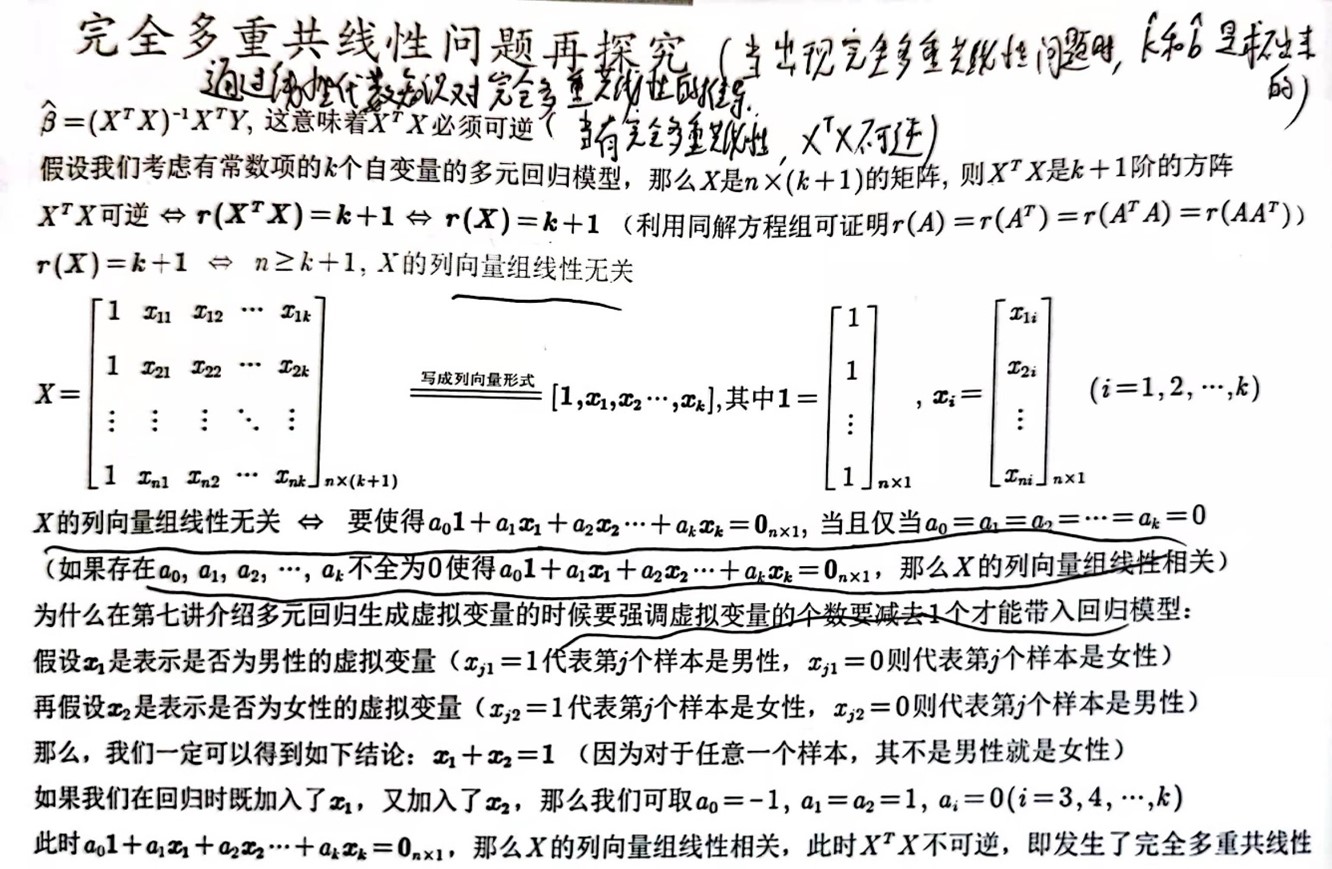 完全多重共线性问题再探究(当出现完全多重共线性问题时, k̂和b̂是求不出来的)
通过线性代数知识对完全多重共线性的推导.
β̂=(XᵀX)⁻¹XᵀY, 这意味着XᵀX必须可逆(当有完全多重共线性, XᵀX不可逆)
假设我们考虑有常数项的k个自变量的多元回归模型，那么X是n×(k+1)的矩阵, 则XᵀX是k+1阶的方阵
XᵀX可逆 ⇔ r(XᵀX)=k+1 ⇔ r(X)=k+1 （利用同解方程组可证明r(A)=r(Aᵀ)=r(AᵀA)=r(AAᵀ)）
r(X)=k+1 ⇔ n≥k+1, X的列向量组线性无关
X=[1 x₁₁ x₁₂ ⋯ x₁ₖ
1 x₂₁ x₂₂ ⋯ x₂ₖ
⋮ ⋮ ⋮ ⋱ ⋮
1 xₙ₁ xₙ₂ ⋯ xₙₖ]n×(k+1) 写成列向量形式 [1,x₁,x₂⋯,xₖ],其中1=[1 1 ⋮ 1]n×1 , xᵢ=[x₁ᵢ x₂ᵢ ⋮ xₙᵢ]n×1 (i=1,2,⋯,k)
X的列向量组线性无关 ⇔ 要使得a₀1+a₁x₁+a₂x₂⋯+aₖxₖ=0n×1, 当且仅当a₀=a₁=a₂=⋯=aₖ=0
（如果存在a₀, a₁, a₂, ⋯, aₖ不全为0使得a₀1+a₁x₁+a₂x₂⋯+aₖxₖ=0n×1，那么X的列向量组线性相关）
为什么在第七讲介绍多元回归生成虚拟变量的时候要强调虚拟变量的个数要减去1个才能带入回归模型：
假设x₁是表示是否为男性的虚拟变量（xⱼ₁=1代表第j个样本是男性，xⱼ₁=0则代表第j个样本是女性）
再假设x₂是表示是否为女性的虚拟变量（xⱼ₂=1代表第j个样本是女性，xⱼ₂=0则代表第j个样本是男性）
那么，我们一定可以得到如下结论：x₁+x₂=1 （因为对于任意一个样本，其不是男性就是女性）
如果我们在回归时既加入了x₁，又加入了x₂，那么我们可取a₀=-1, a₁=a₂=1, aᵢ=0(i=3,4,⋯,k)
此时a₀1+a₁x₁+a₂x₂⋯+aₖxₖ=0n×1，那么X的列向量组线性相关，此时XᵀX不可逆，即发生了完全多重共线性